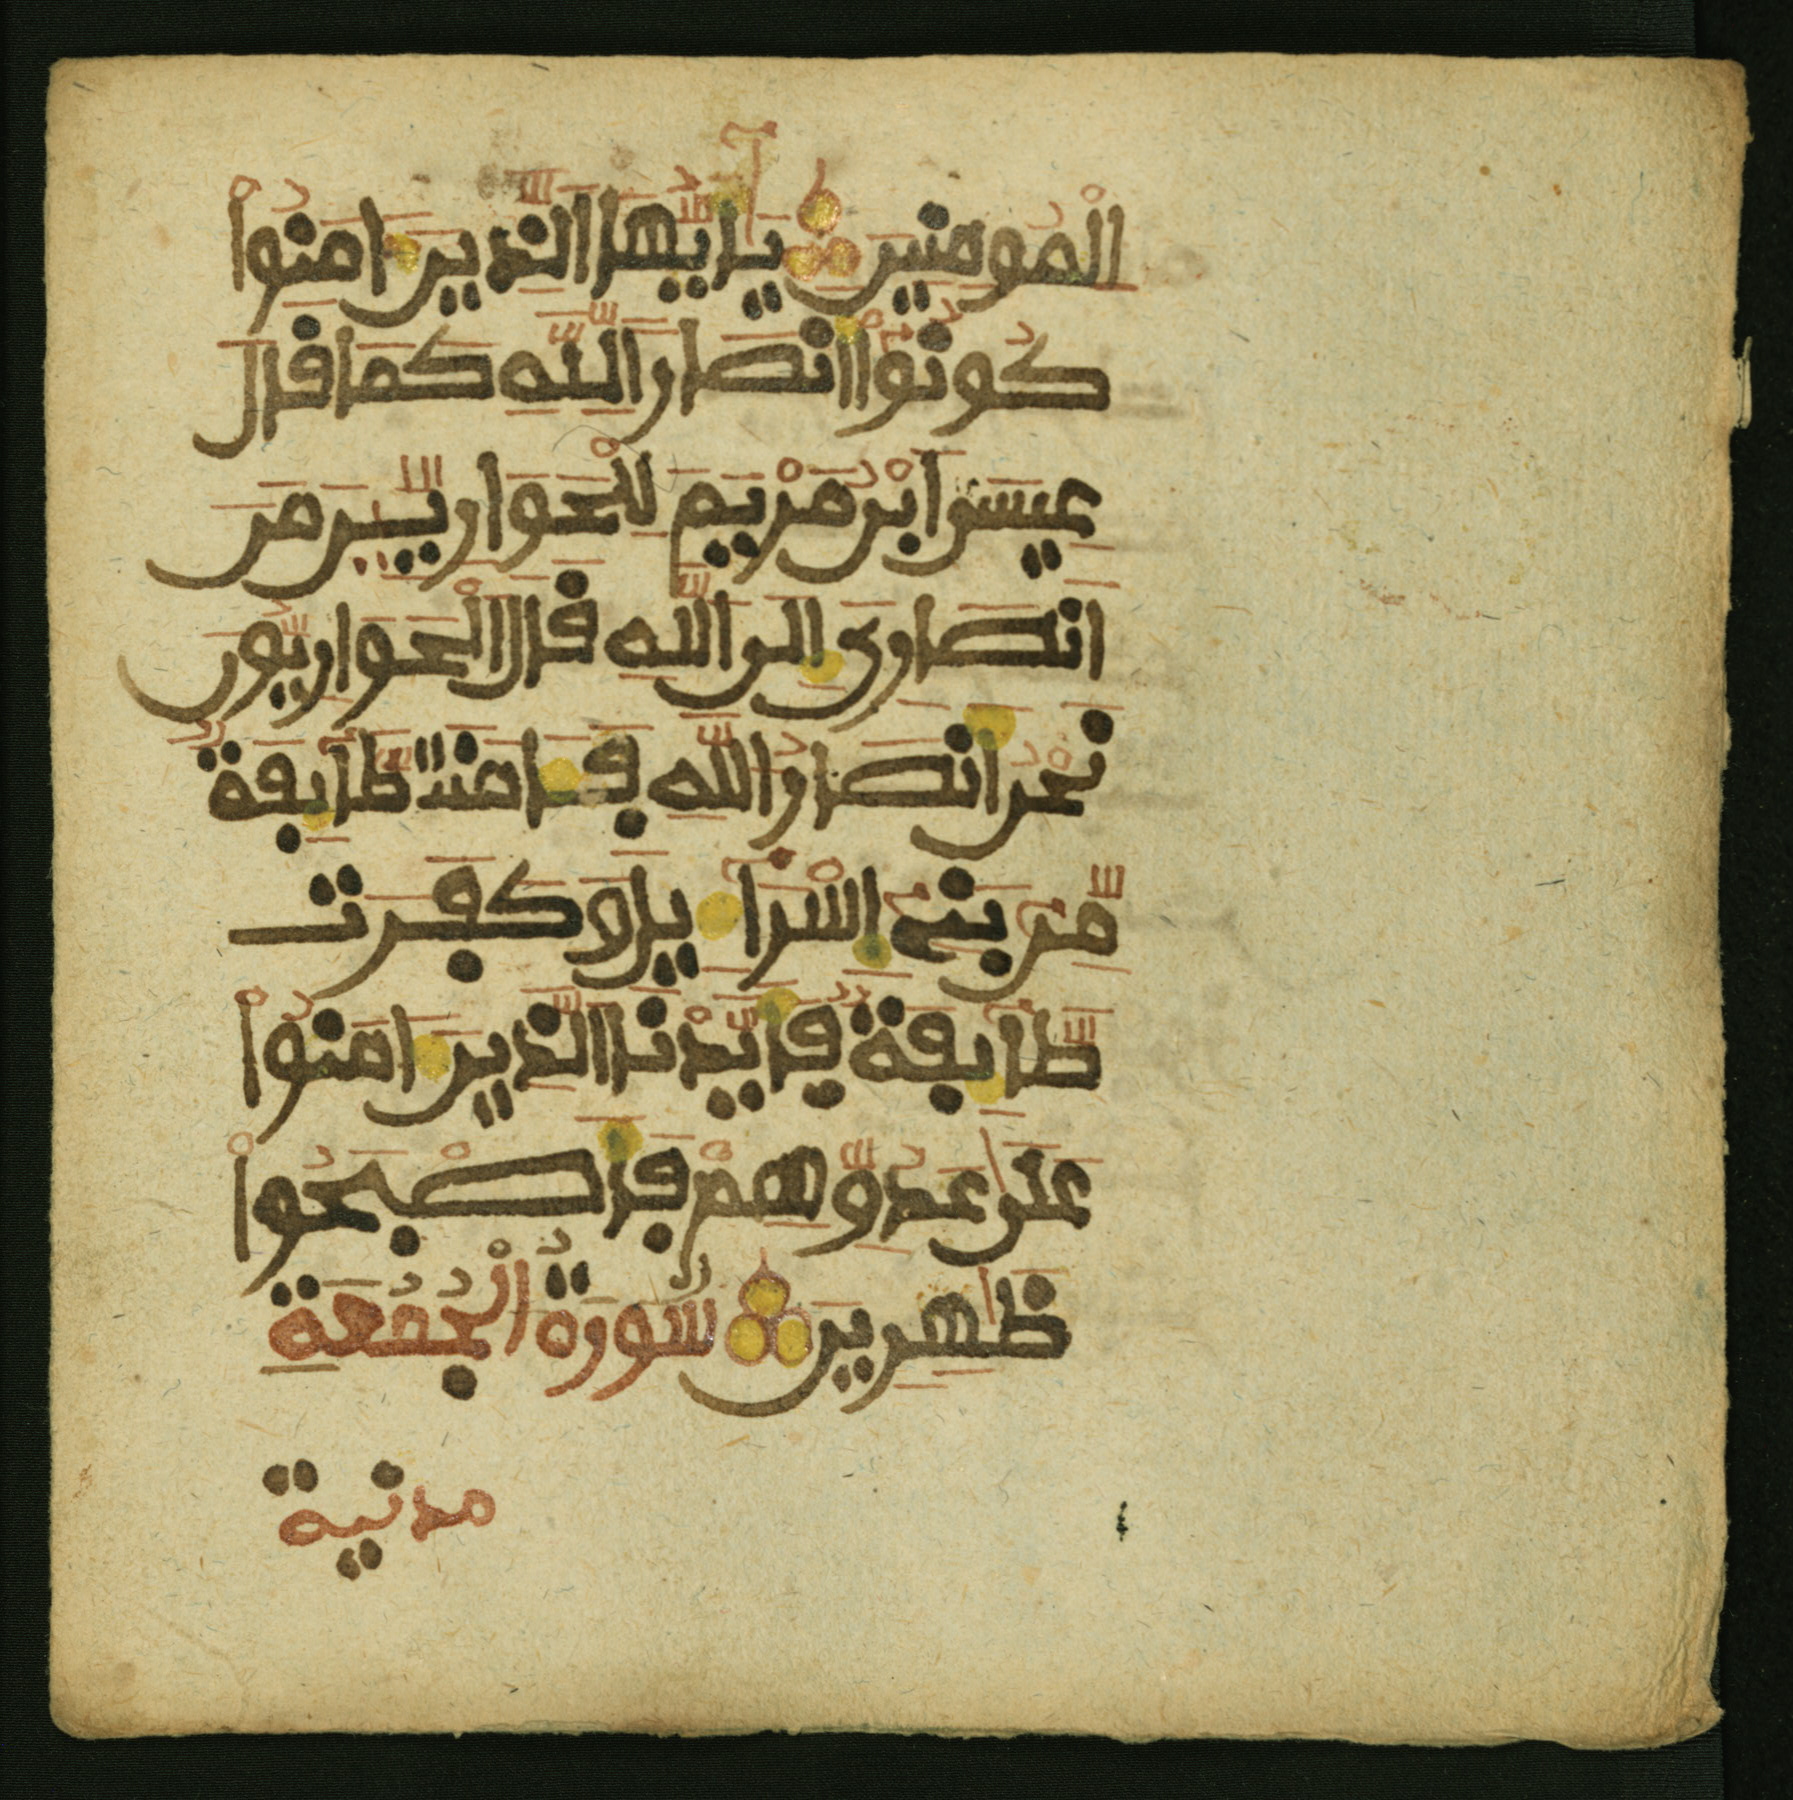 المومنين يايها الذين امنوا
كونوا انصار الله كما قال
عيسى ابن مريم للحواريين من
انصاري الى الله قال الحواريون
نحن انصار الله فامنت طايفة
من بني اسرايل وكفرت
طايفة فايدنا الذين امنوا
على عدوهم فاصبحوا
ظهرين سورة الجمعة
مدنية